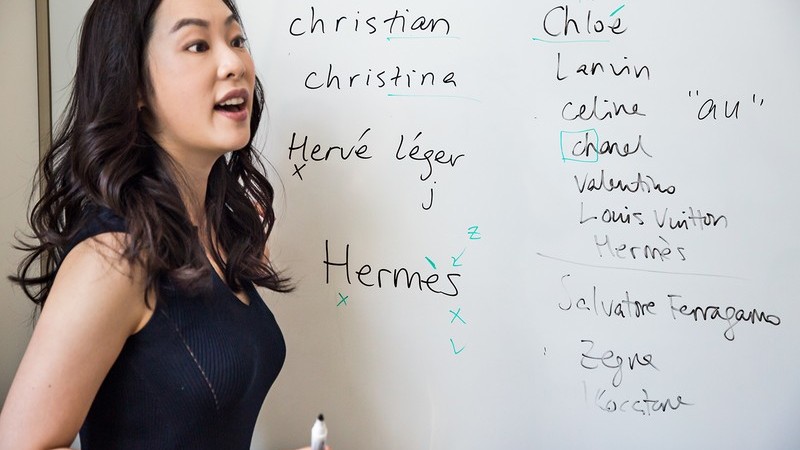 christian
christina
Hervé léger
x
j
z
Hermès
x
x
Chloé
Lanvin
celine "au"
chanel
Valentino
Louis Vuitton
Hermès
Salvatore Ferragamo
Zegna